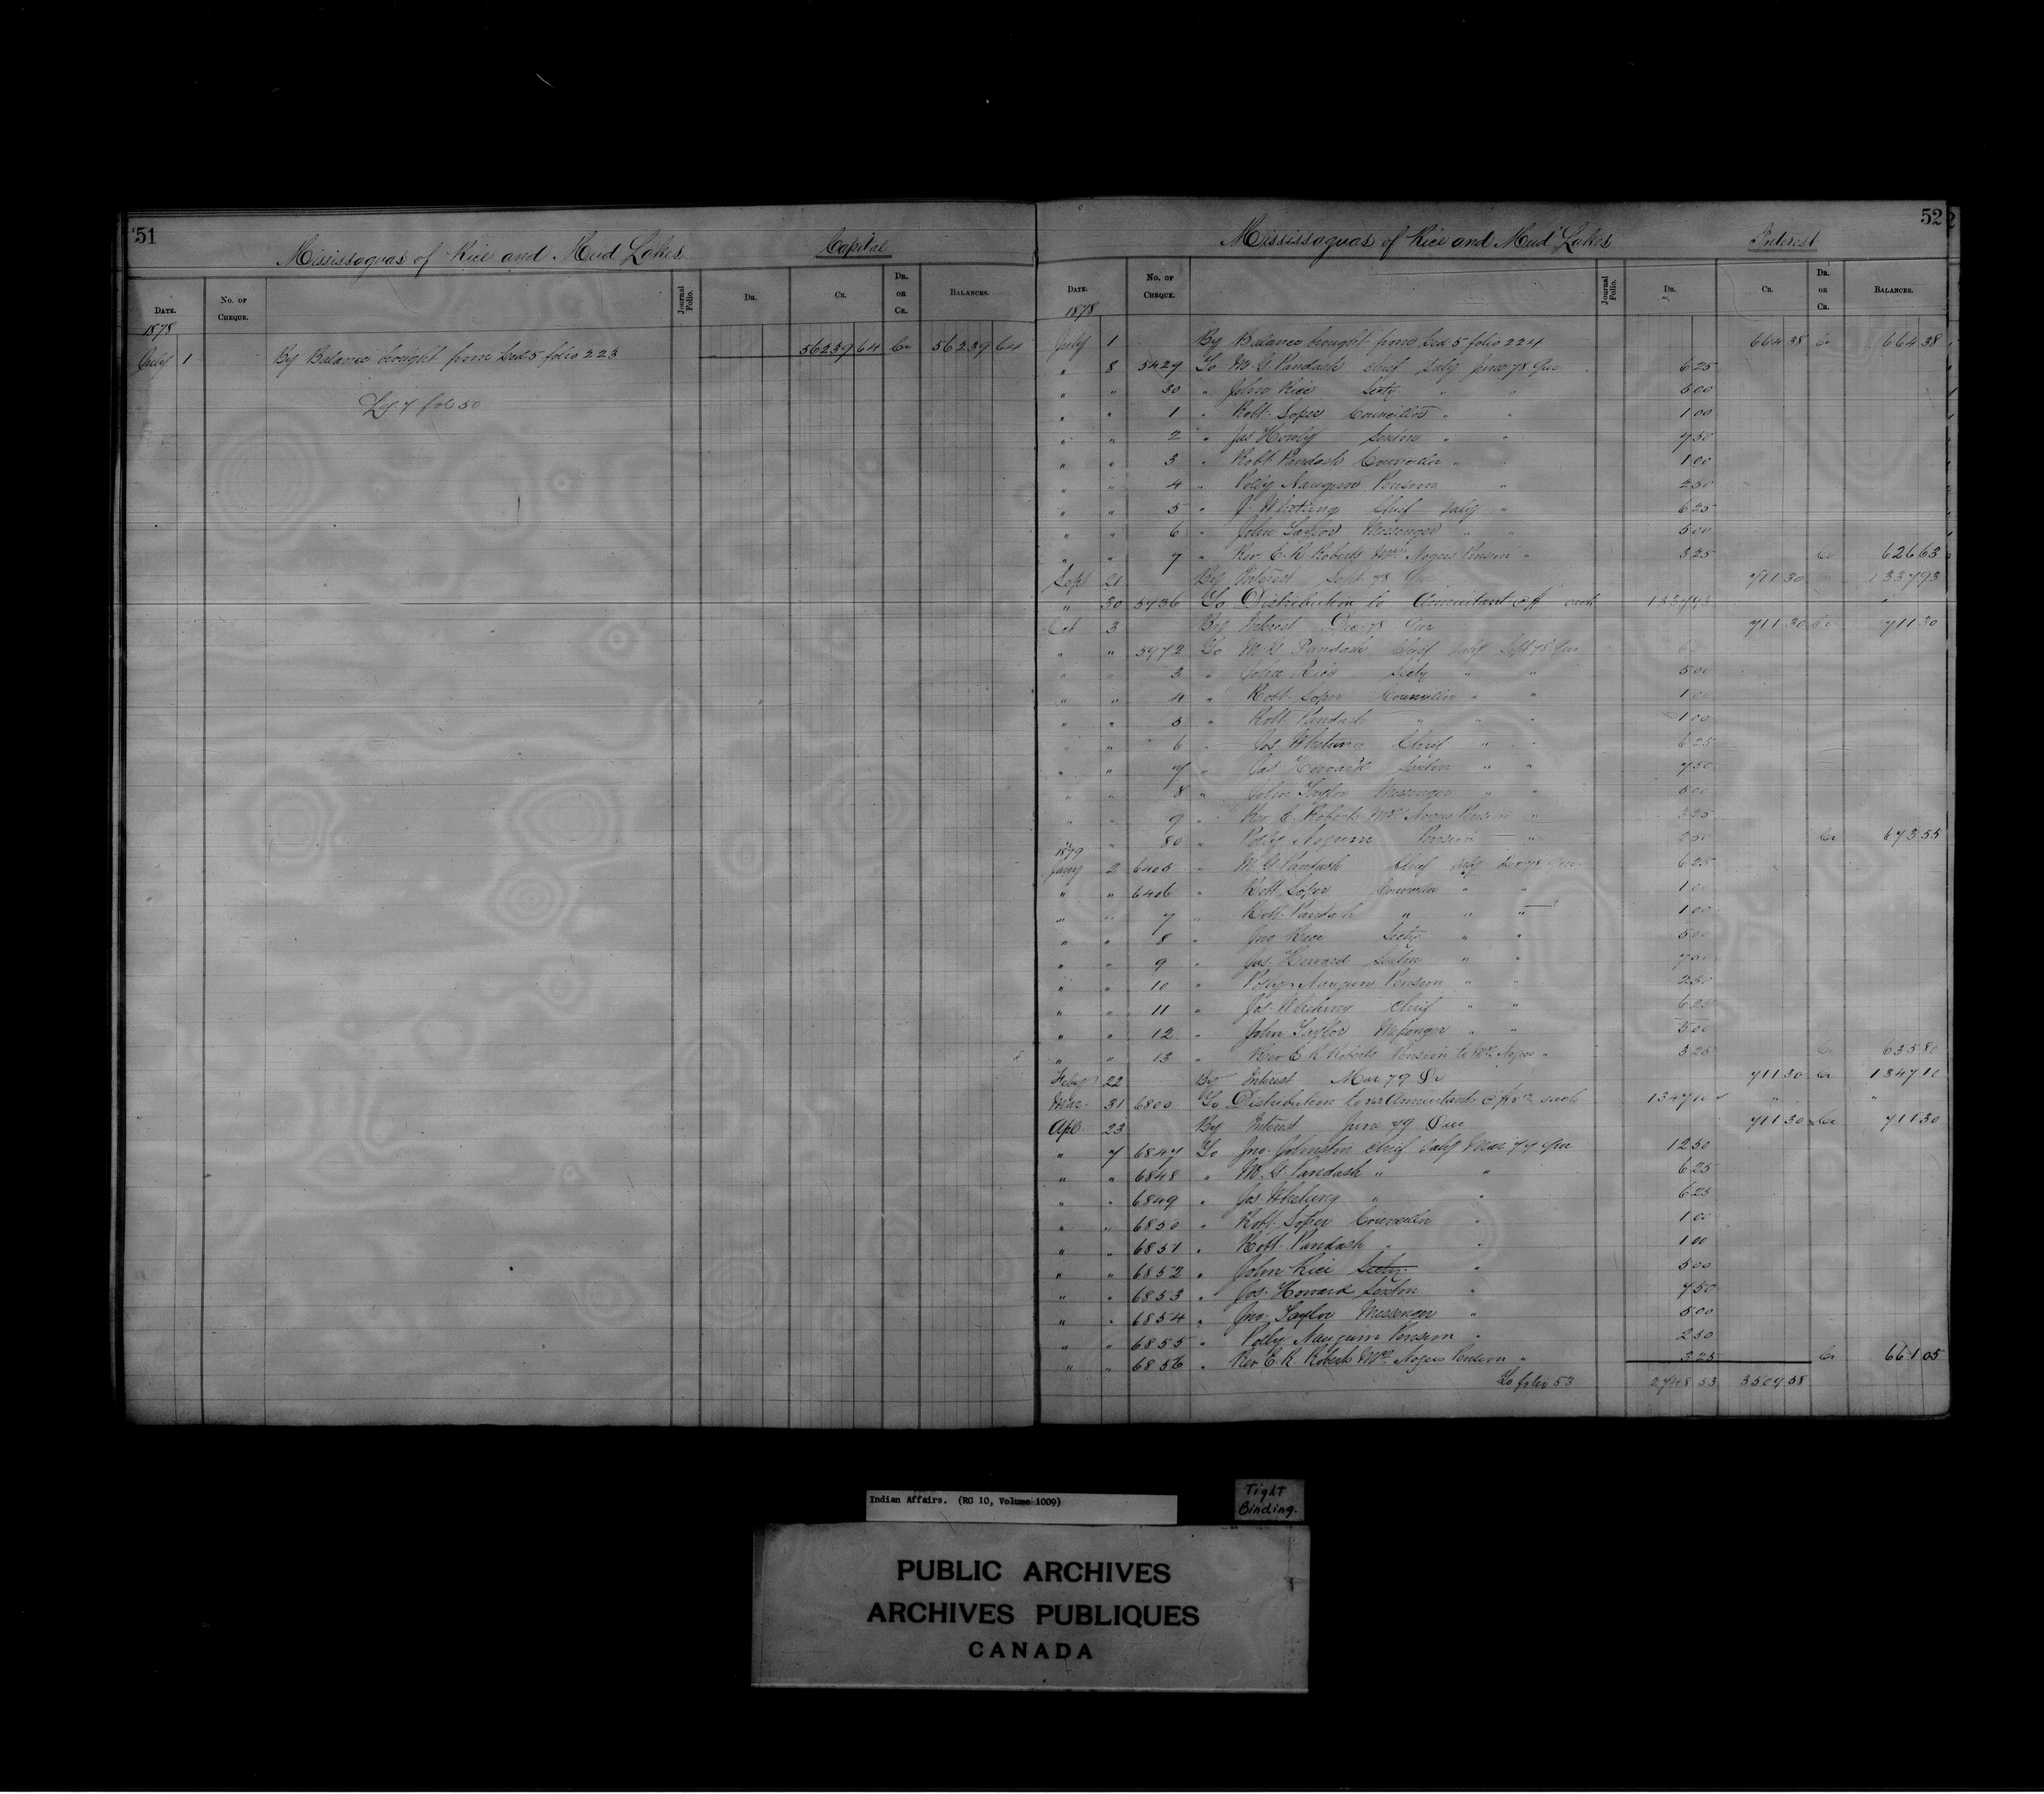 51
Mississaguas of Rice and Mud Lakes Capital
Date. No. of Cheque. Journal Folio. Dr. Cr. Dr. or Cr. Balances.
1878
July 1 By Balance brought from Led 5 folio 223 56239 64 Cr 56239 64
fol 50
52
Mississaguas of Rice and Mud Lakes Interest
Date. No. of Cheque. Journal Folio. Dr. Cr. Dr. or Cr. Balances.
1878
July 1 By Balance brought from Led 5 folio 224 664 38 Cr 664 38
" 8 5429 To M. G. Pandash Chief Saly June 78 Qur 6 25
" " 30 " John Rice Secty " " 5 00
" " 1 " Robt Soper Councillor " " 1 00
" " 2 " Jas Sexton " " 7 50
" " 3 " Robt Pandash " 1 00
" " 4 " Polly Naugum Pension " 2 50
" " 5 " J. Whetung Chief Saly " 6 25
" " 6 " John Taylor Messenger " " 5 00
" " 7 " Rev. E. R. Roberts Mrs Nogees Pension " 3 25 Cr 626 63
Sept 21 By Interest Sept 78 Qur 711 30 Cr 1337 93
" 30 5936 To Distribution to each 1337 93 "
Oct 3 By Interest Dec 78 Qur 711 30 Cr 711 30
" " 5972 To M. G. Pandash Chief Saly Sept 78 Qur 6 25
" " 3 " John Rice Secty " " 5 00
" " 4 " Robt. Soper Councillor " " 1 00
" " 5 " Robt Pandash " " " 1 00
" " 6 " Jos. Whetung Chief " " 6 25
" " 7 " Jas Howard Sexton " " 7 50
" " 8 " John Taylor Messenger " " 5 00
" " 9 " Rev. E. Roberts Mrs Nogees Pension " 3 25
" " 80 " Polly Pension " 2 50 Cr 673 55
1879
Jany 2 6405 " M. G. Pandash Chief Saly Dec 78 Qur 6 25
" " 6406 " Robt Soper Councillor " " 1 00
" " 7 " Robt. Pandash " " " 1 00
" " 8 " Jno Rice Secty " " 5 00
" " 9 " Jas. Howard Sexton " " 7 50
" " 10 " Polly Naugum Pension " " 2 50
" " 11 " Jos. Whetung Chief " " 6 25
" " 12 " John Taylor Messenger " " 5 00
" " 13 " Rev E R Roberts Pension to Mrs Nogee " 3 25 Cr 635 80
Feby 22 By Interest Mar 79 Qr 711 30 Cr 1347 10
Mar. 31 6800 To Distribution to each 1347 10 " "
Apl. 23 By Interest June 79 Qur 711 30 Cr 711 30
" 7 6847 To Jno. Johnston Chief Saly Mar 79 Qur 12 50
" " 6848 " M. G. Pandash " " 6 25
" " 6849 " Jos. Whetung " " 6 25
" " 6850 " Robt. Soper Councillor " 1 00
" " 6851 " Robt. Pandash " " 1 00
" " 6852 " John Rice Secty. " 5 00
" " 6853 " Jas. Howard Sexton " 7 50
" " 6854 " Jno. Taylor Messenger " 5 00
" " 6855 " Polly Naugum Pension " 2 50
" " 6856 " Rev E. R. Roberts Mrs. Nogees Pension " 3 25 Cr 661 05
To folio 53 2748 53 3509 58
Indian Affairs. (RG 10, Volume 1009)
Tight
Binding.
PUBLIC ARCHIVES
ARCHIVES PUBLIQUES
CANADA